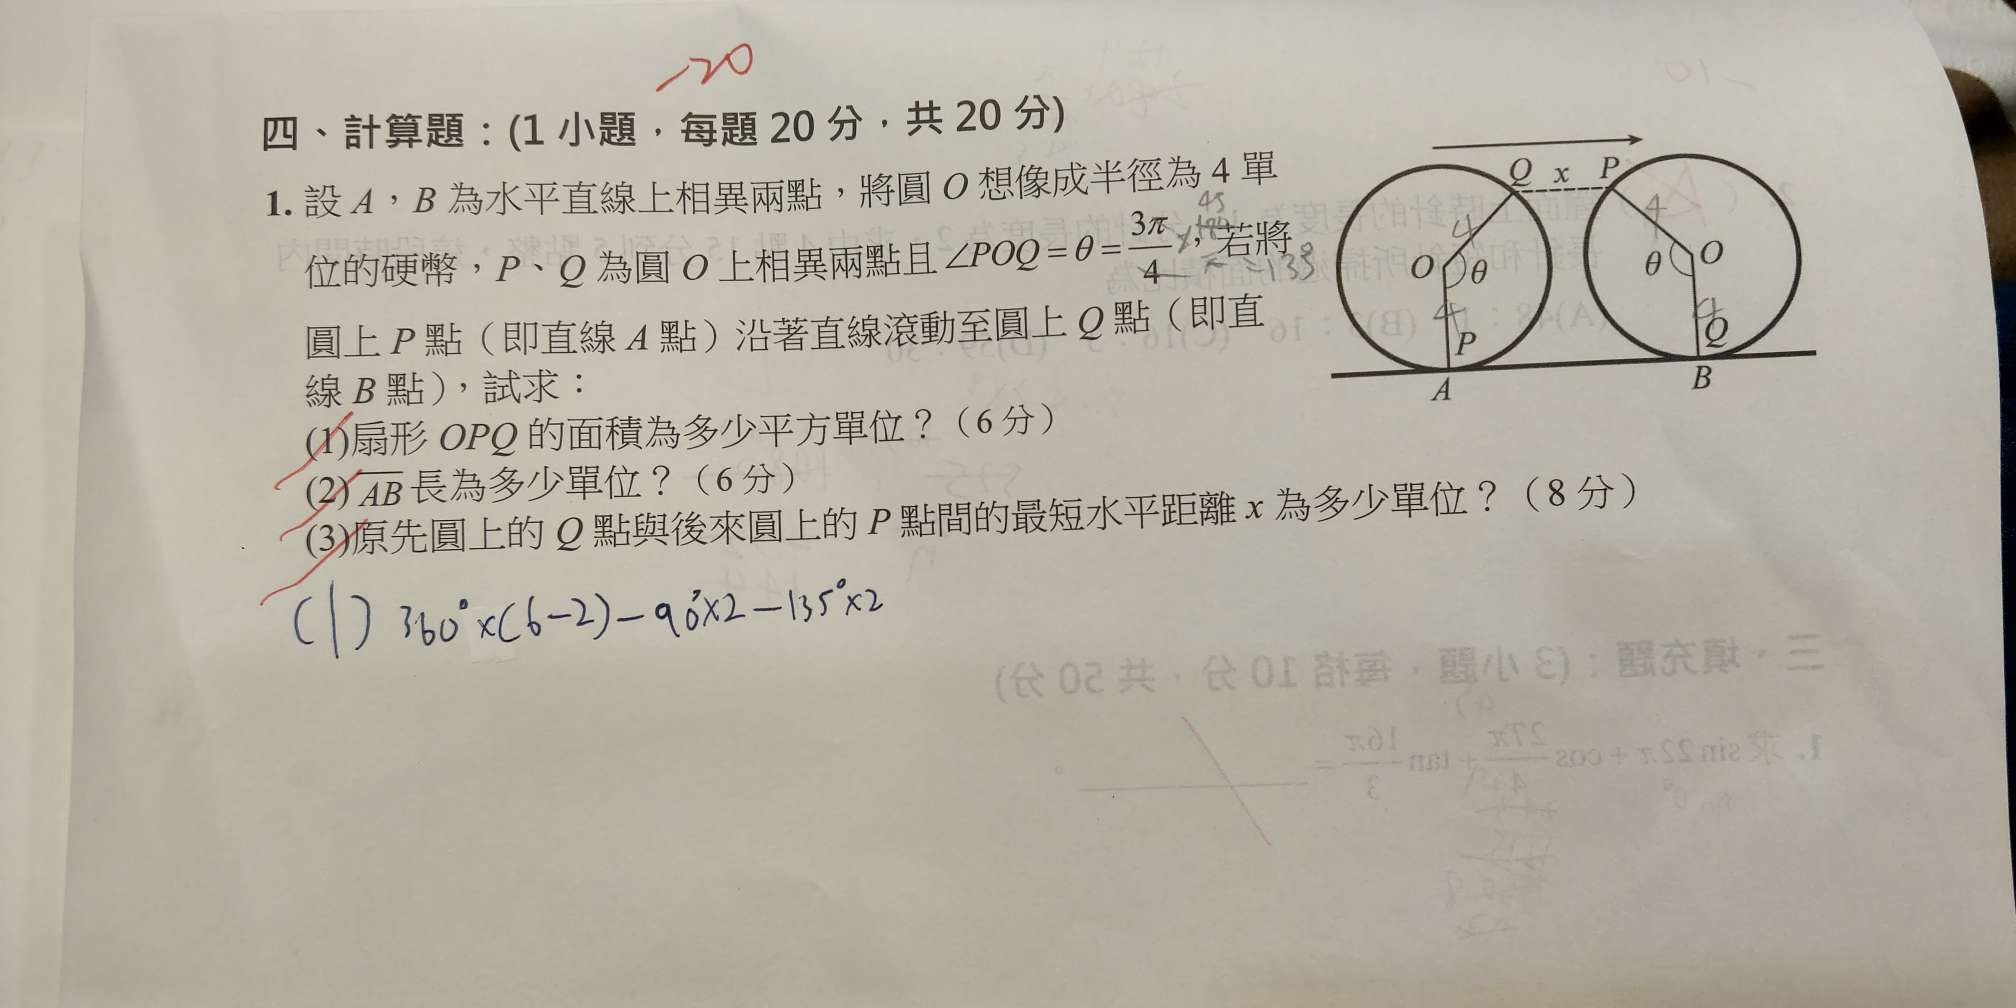 -20
四、計算題：(1 小題，每題 20 分，共 20 分)
1. 設 A，B 為水平直線上相異兩點，將圓 O 想像成半徑為 4 單
位的硬幣，P、Q 為圓 O 上相異兩點且 ∠POQ = θ = 3π/4，若將
圓上 P 點（即直線 A 點）沿著直線滾動至圓上 Q 點（即直
線 B 點），試求：
(1)扇形 OPQ 的面積為多少平方單位？（6 分）
(2) AB 長為多少單位？（6 分）
(3)原先圓上的 Q 點與後來圓上的 P 點間的最短水平距離 x 為多少單位？（8 分）
Q x P
4 4
O θ θ O
4 4
P Q
A B
(1) 360°×(6-2)-90°×2-135°×2
三、填充題：(3 小題，每格 10 分，共 50 分)
1. 求 sin 22π + cos 27π/4 + tan 16π/3 =